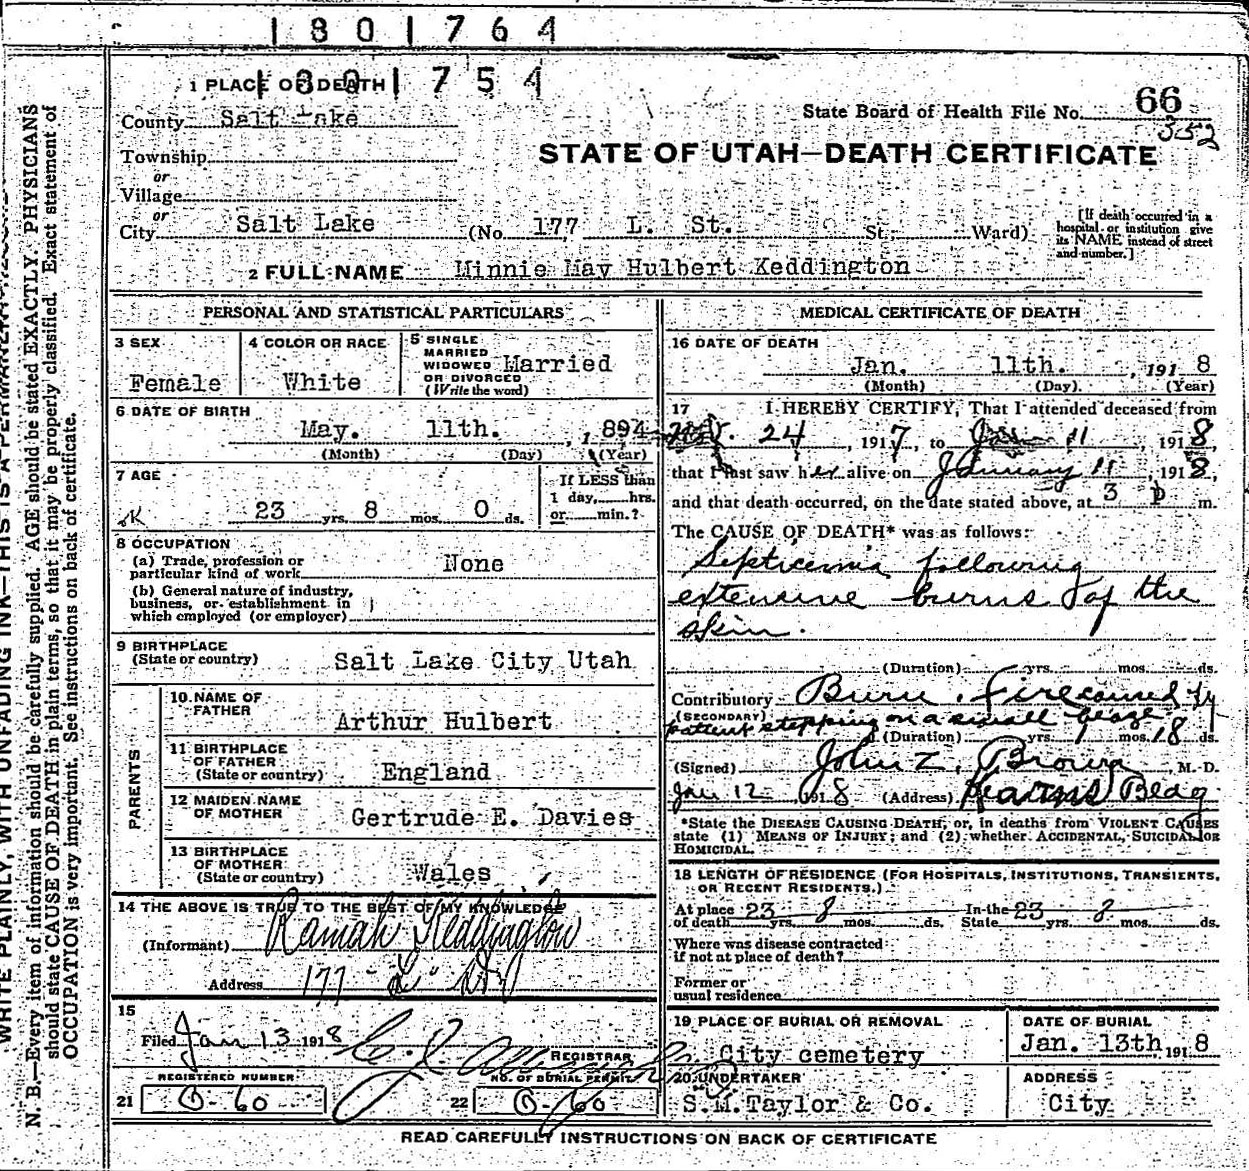 1801764
1801754
1 PLACE OF DEATH
County Salt Lake
State Board of Health File No. 66
352
Township
or
Village
or
City Salt Lake (No. 177 L. St. St.; Ward)
STATE OF UTAH—DEATH CERTIFICATE
[If death occurred in a
hospital or institution give
its NAME instead of street
and number.]
2 FULL NAME Minnie May Hulbert Keddington
PERSONAL AND STATISTICAL PARTICULARS
3 SEX
Female
4 COLOR OR RACE
White
5 SINGLE
MARRIED
WIDOWED
OR DIVORCED
(Write the word)
Married
6 DATE OF BIRTH
May. 11th. , 1894
(Month) (Day) (Year)
7 AGE
OK
23 yrs. 8 mos. 0 ds.
If LESS than
1 day, hrs.
or min.?
8 OCCUPATION
(a) Trade, profession or
particular kind of work None
(b) General nature of industry,
business, or establishment in
which employed (or employer)
9 BIRTHPLACE
(State or country) Salt Lake City Utah
PARENTS
10 NAME OF
FATHER Arthur Hulbert
11 BIRTHPLACE
OF FATHER
(State or country) England
12 MAIDEN NAME
OF MOTHER Gertrude E. Davies
13 BIRTHPLACE
OF MOTHER
(State or country) Wales
14 THE ABOVE IS TRUE TO THE BEST OF MY KNOWLEDGE
(Informant) Ramah Keddington
Address 177 "L" St
15
Filed Jan 13 1918
REGISTRAR
REGISTERED NUMBER
21 B-60
NO. OF BURIAL PERMIT
22 B-60
MEDICAL CERTIFICATE OF DEATH
16 DATE OF DEATH
Jan. 11th. , 1918
(Month) (Day) (Year)
17 I HEREBY CERTIFY, That I attended deceased from
Nov. 24, 1917, to Jan 11 1918,
that I last saw her alive on January 11, 1918,
and that death occurred, on the date stated above, at 3 P m.
The CAUSE OF DEATH* was as follows:
Septicemia following
extensive burns of the
skin.
(Duration) yrs. mos. ds.
Contributory Burn. Fire caused by
(SECONDARY)
patient stepping on a small
(Duration) yrs. 1 mos. 18 ds.
(Signed) John Z. Brown, M. D.
Jan 12, 1918 (Address) Kearns Bldg
*State the DISEASE CAUSING DEATH, or, in deaths from VIOLENT CAUSES
state (1) MEANS OF INJURY; and (2) whether ACCIDENTAL, SUICIDAL OR
HOMICIDAL.
18 LENGTH OF RESIDENCE (FOR HOSPITALS, INSTITUTIONS, TRANSIENTS,
OR RECENT RESIDENTS.)
At place In the
of death 23 yrs. 8 mos. ds. State 23 yrs. 8 mos. ds.
Where was disease contracted
if not at place of death?
Former or
usual residence
19 PLACE OF BURIAL OR REMOVAL
City cemetery
DATE OF BURIAL
Jan. 13th, 1918
20 UNDERTAKER
S.M. Taylor & Co.
ADDRESS
City
READ CAREFULLY INSTRUCTIONS ON BACK OF CERTIFICATE
WRITE PLAINLY, WITH UNFADING INK—THIS IS A PERMANENT
N. B.—Every item of information should be carefully supplied. AGE should be stated EXACTLY. PHYSICIANS
should state CAUSE OF DEATH in plain terms, so that it may be properly classified. Exact statement of
OCCUPATION is very important. See instructions on back of certificate.